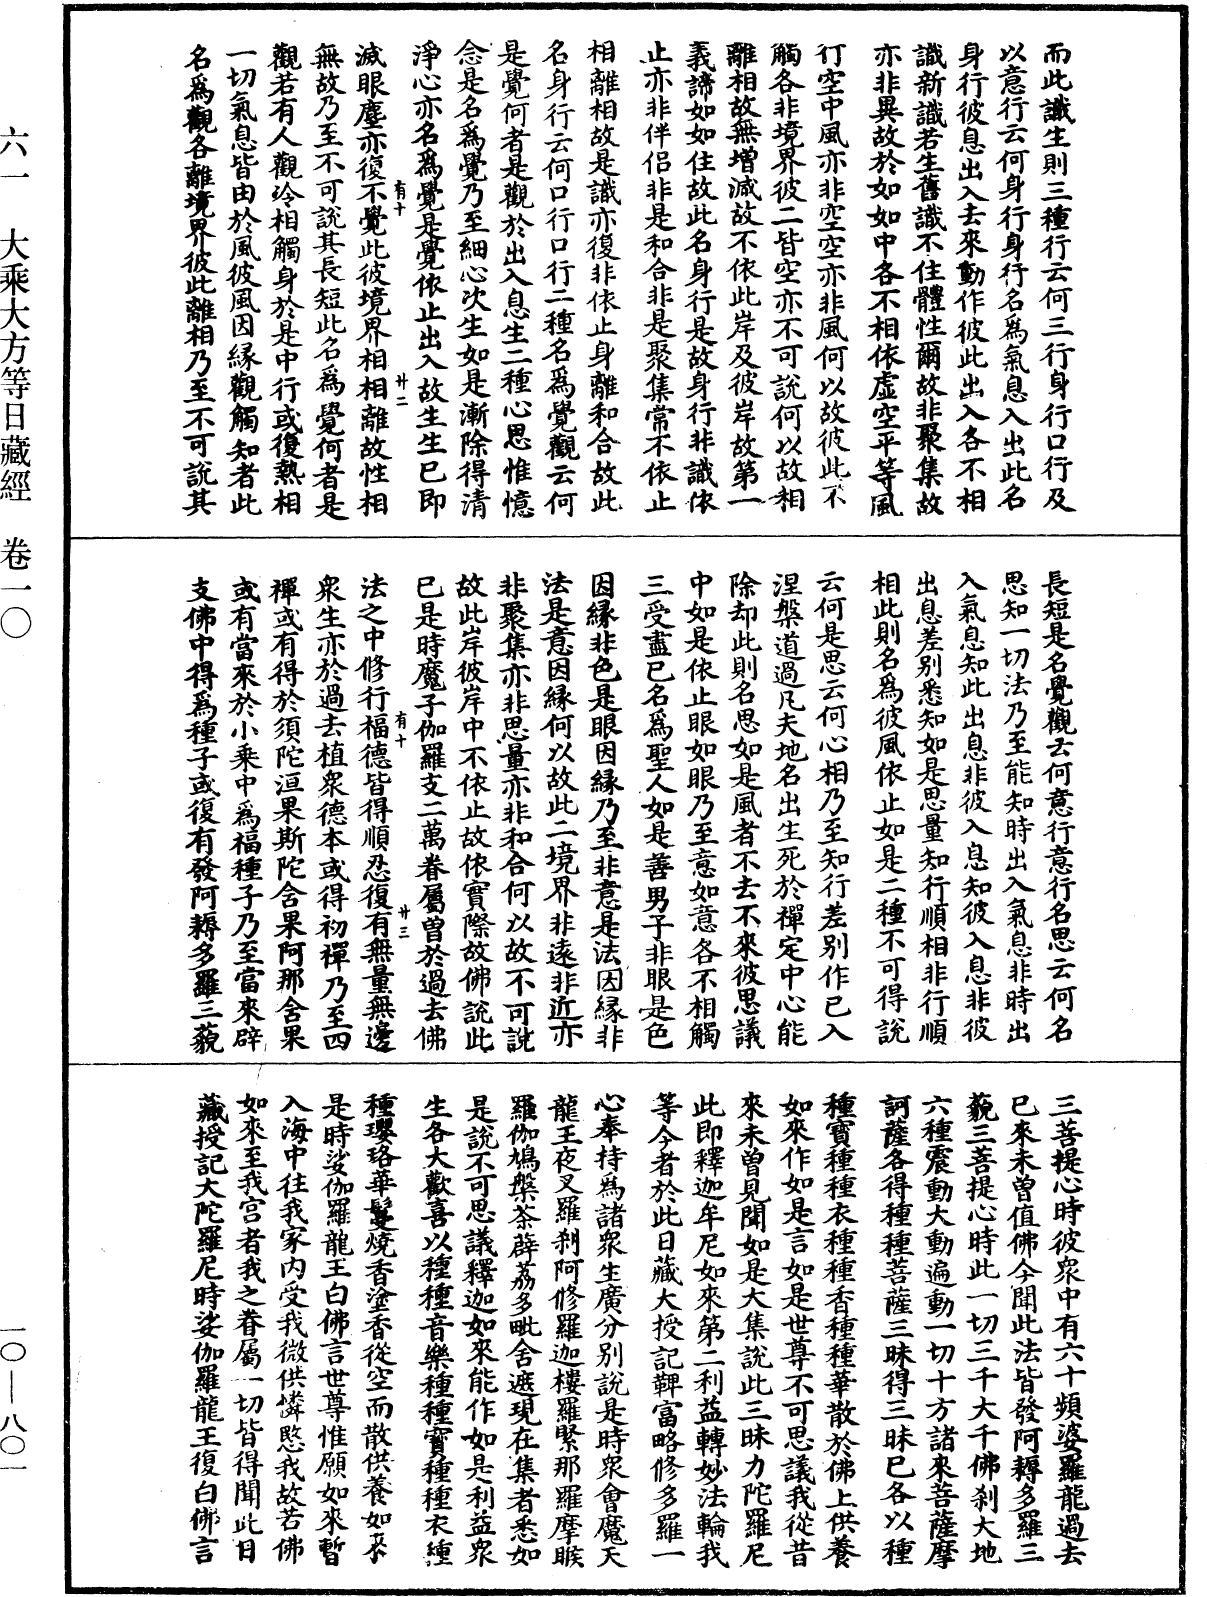 而此識生則三種行云何三行身行口行及
以意行云何身行身行名為氣息入出此名
身行彼息出入去來動作彼此出入各不相
識新識若生舊識不住體性爾故非聚集故
亦非異故於如如中各不相依虛空平等風
行空中風亦非空空亦非風何以故彼此不
觸各非境界彼二皆空亦不可說何以故相
離相故無增減故不依此岸及彼岸故第一
義諦如如住故此名身行是故身行非識依
止亦非伴侶非是和合非是聚集常不依止
相離相故是識亦復非依止身離和合故此
名身行云何口行口行二種名為覺觀云何
是覺何者是觀於出入息生二種心思惟憶
念是名為覺乃至細心次生如是漸除得清
淨心亦名為覺是覺依止出入故生生已即
有十
廿二
滅眼塵亦復不覺此彼境界相相離故性相
無故乃至不可說其長短此名為覺何者是
觀若有人觀冷相觸身於是中行或復熱相
一切氣息皆由於風彼風因緣觀觸知者此
名為觀各離境界彼此離相乃至不可說其
長短是名覺觀云何意行意行名思云何名
思知一切法乃至能知時出入氣息非時出
入氣息知此出息非彼入息知彼入息非彼
出息差別悉知如是思量知行順相非行順
相此則名為彼風依止如是二種不可得說
云何是思云何心相乃至知行差別作已入
涅槃道過凡夫地名出生死於禪定中心能
除却此則名思如是風者不去不來彼思議
中如是依止眼如眼乃至意如意各不相觸
三受盡已名為聖人如是善男子非眼是色
因緣非色是眼因緣乃至非意是法因緣非
法是意因緣何以故此二境界非遠非近亦
非聚集亦非思量亦非和合何以故不可說
故此岸彼岸中不依止故依實際故佛說此
已是時魔子伽羅支二萬眷屬曾於過去佛
有十
廿三
法之中修行福德皆得順忍復有無量無邊
眾生亦於過去植眾德本或得初禪乃至四
禪或有得於須陀洹果斯陀含果阿那含果
或有當來於小乘中為福種子乃至當來辟
支佛中得為種子或復有發阿耨多羅三藐
三菩提心時彼眾中有六十頻婆羅龍過去
已來未曾值佛今聞此法皆發阿耨多羅三
藐三菩提心時此一切三千大千佛剎大地
六種震動大動遍動一切十方諸來菩薩摩
訶薩各得種種菩薩三昧得三昧已各以種
種寶種種衣種種香種種華散於佛上供養
如來作如是言如是世尊不可思議我從昔
來未曾見聞如是大集說此三昧力陀羅尼
此即釋迦牟尼如來第二利益轉妙法輪我
等今者於此日藏大授記鞞富略修多羅一
心奉持為諸眾生廣分別說是時眾會魔天
龍王夜叉羅剎阿修羅迦樓羅緊那羅摩睺
羅伽鳩槃荼薜荔多毗舍遮現在集者悉如
是說不可思議釋迦如來能作如是利益眾
生各大歡喜以種種音樂種種寶種種衣種
種瓔珞華鬘燒香塗香從空而散供養如來
是時娑伽羅龍王白佛言世尊惟願如來暫
入海中往我家內受我微供憐愍我故若佛
如來至我宮者我之眷屬一切皆得聞此日
藏授記大陀羅尼時娑伽羅龍王復白佛言
六一　大乘大方等日藏經　卷一〇
一〇—八〇一